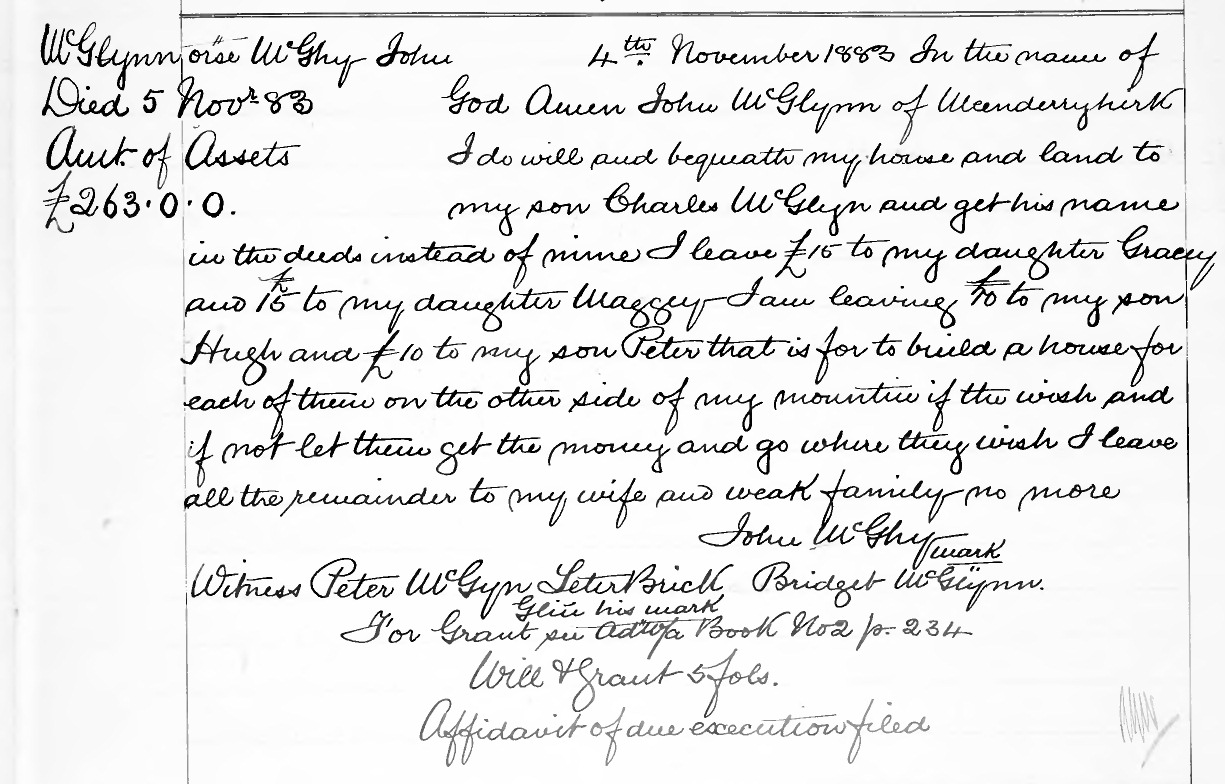 McGlynn or'se McGhy John 4th. November 1883 In the name of
Died 5 Novr 83 God Amen John McGlynn of Meenderryhirk
Amt. of Assets I do will and bequeath my house and land to
£263.0.0. my son Charles McGlyn and get his name
in the deeds instead of mine I leave £15 to my daughter Gracey
and £15 to my daughter Maggey I am leaving £10 to my son
Hugh and £10 to my son Peter that is for to build a house for
each of them on the other side of my mountin if the wish and
if not let them get the money and go where they wish I leave
all the remainder to my wife and weak family no more
John McGhy mark
Witness Peter McGyn LeterBrick Bridget McGlÿnn.
his mark
For Grant see Book No 2 p. 234
Will & Grant 5 fols.
Affidavit of due execution filed